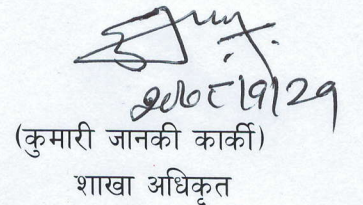 २०७८।९।२९
(कुमारी जानकी कार्की)
शाखा अधिकृत